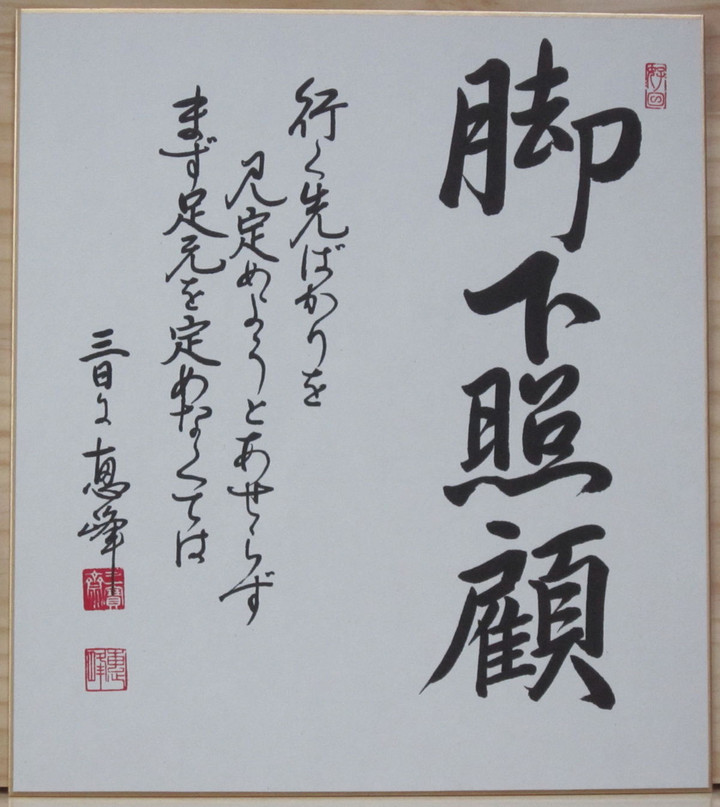 脚下照顧
行く先ばかりを
見定めようとあせらず
まず足元を定めなくては
恵峰